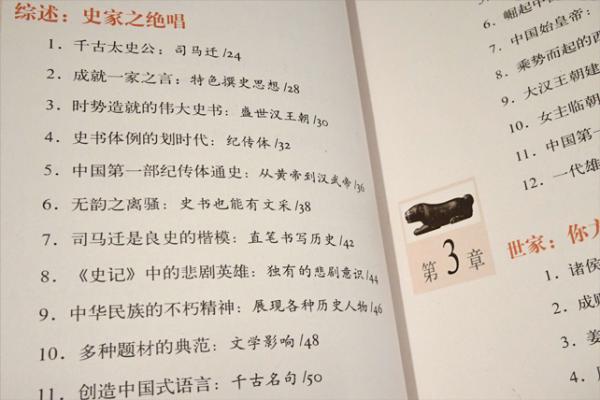 综述：史家之绝唱
1．千古太史公：司马迁/24
2．成就一家之言：特色撰史思想/28
3．时势造就的伟大史书：盛世汉王朝/30
4．史书体例的划时代：纪传体/32
5．中国第一部纪传体通史：从黄帝到汉武帝/36
6．无韵之离骚：史书也能有文采/38
7．司马迁是良史的楷模：直笔书写历史/42
8．《史记》中的悲剧英雄：独有的悲剧意识/44
9．中华民族的不朽精神：展现各种历史人物/46
10．多种题材的典范：文学影响/48
11．创造中国式语言：千古名句/50
6．崛起中
7．中国始皇帝：
8．乘势而起的西
9．大汉王朝建
10．女主临朝
11．中国第一
12．一代雄
第3章
世家：你
1．诸侯
2．成
3．姜
4．